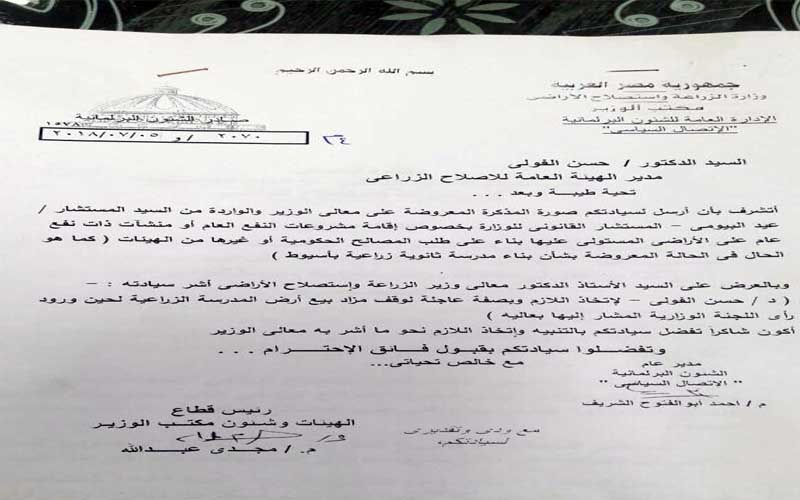 بسم الله الرحمن الرحيم
جمهورية مصر العربية
وزارة الزراعة واستصلاح الأراضى
مكتب الوزير
الإدارة العامة للشئون البرلمانية
"الإتصال السياسى"
صادر الشئون البرلمانية
١٥٢٨
٢٠٧٠ / و ٢٠١٨/٠٧/٠٥
٣٤
السيد الدكتور / حسن الفولى
مدير الهيئة العامة للاصلاح الزراعى
تحية طيبة وبعد ...
أتشرف بأن أرسل لسيادتكم صورة المذكرة المعروضة على معالى الوزير والواردة من السيد المستشار /
عيد البيومى - المستشار القانونى للوزارة بخصوص إقامة مشروعات النفع العام أو منشآت ذات نفع
عام على الأراضى المستولى عليها بناء على طلب المصالح الحكومية أو غيرها من الهيئات ( كما هو
الحال فى الحالة المعروضة بشأن بناء مدرسة ثانوية زراعية بأسيوط )
وبالعرض على السيد الأستاذ الدكتور معالى وزير الزراعة وإستصلاح الأراضى أشر سيادته : -
( د / حسن الفولى - لإتخاذ اللازم وبصفة عاجلة لوقف مزاد بيع أرض المدرسة الزراعية لحين ورود
رأى اللجنة الوزارية المشار إليها بعاليه )
أكون شاكراً تفضل سيادتكم بالتنبيه وإتخاذ اللازم نحو ما أشر به معالى الوزير
وتفضلوا سيادتكم بقبول فائق الإحترام ...
مع خالص تحياتى...
مدير عام
الشئون البرلمانية
" الإتصال السياسى "
م / احمد ابوالفتوح الشريف
مع ودى وتقديرى
لسيادتكم،
رئيس قطاع
الهيئات وشئون مكتب الوزير
م / مجدى عبدالله